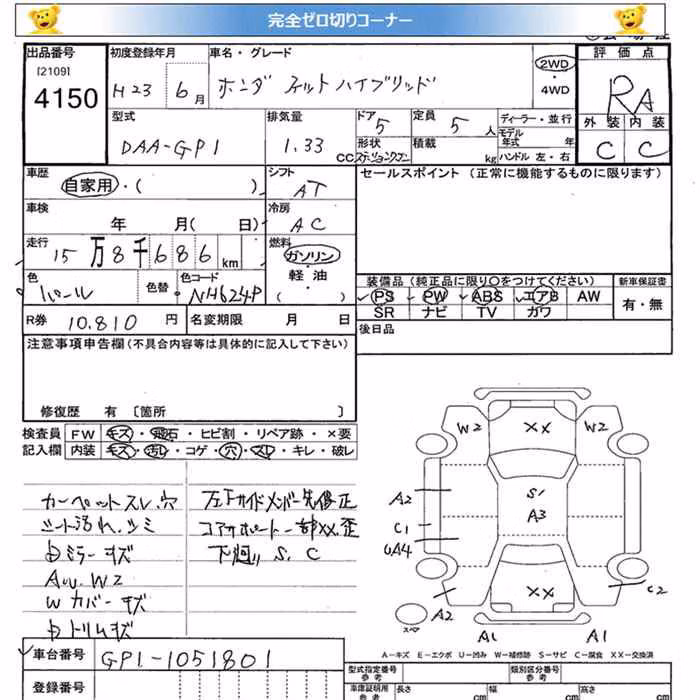 完全ゼロ切りコーナー
出品番号 初度登録年月 車名・グレード 評価点
[2109] H23 6月 ホンダ フィットハイブリッド 2WD・4WD RA
4150
型式 排気量 ドア 定員 ディーラー・並行 外装 内装
DAA-GP1 1.33 CC 5 5人 モデル年式 年 C C
形状 ステーションワゴン 積載 kg ハンドル 左・右
車歴 シフト セールスポイント (正常に機能するものに限ります)
自家用・( ) AT
車検 冷房
年 月( 日) AC
走行 燃料
15万8千686km ガソリン・軽・油( )
色 色替 色コード 装備品(純正品に限り○をつけてください) 新車保証書
パール NH624P PS PW ABS エアB AW 有・無
SR ナビ TV ガワ
R券 10.810円 名変期限 月 日 後日品
注意事項申告欄(不具合内容等は具体的に記入して下さい)
修復歴 有 〔箇所 〕
検査員 FW キズ・飛石・ヒビ割・リペア跡・×要
記入欄 内装 キズ・汚レ・コゲ・穴・スレ・キレ・破レ
カーペットスレ、穴
シート汚れ、シミ
ミラーキズ
AW、W2
Wカバーキズ
トリムキズ
左F サイドメンバー先修正
コアサポート一部XX歪
下廻り S、C
W2 XX W2
S1
A2 A3
C1
UA4
XX C2
A2
スペア A1 A1
A－キズ E－エクボ U－凹み W－補修跡 S－サビ C－腐食 XX－交換済
車台番号 GP1-1051801
登録番号
型式指定番号 参考 類別区分番号 参考
車庫証明用 参考 長さ cm 幅 cm 高さ cm